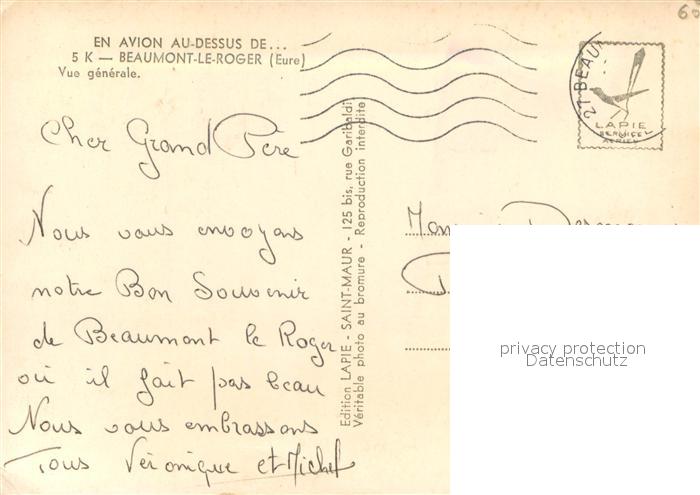 EN AVION AU-DESSUS DE...
5 K — BEAUMONT-LE-ROGER (Eure)
Vue générale.
60
27 BEAU
LAPIE
SERVICE
AERIEN
Cher Grand Père
Nous vous envoyons
notre Bon Souvenir
de Beaumont le Roger
où il fait pas beau
Nous vous embrassons
Tous Véronique et Michel
Edition LAPIE - SAINT-MAUR - 125 bis, rue Garibaldi
Véritable photo au bromure - Reproduction interdite
privacy protection
Datenschutz